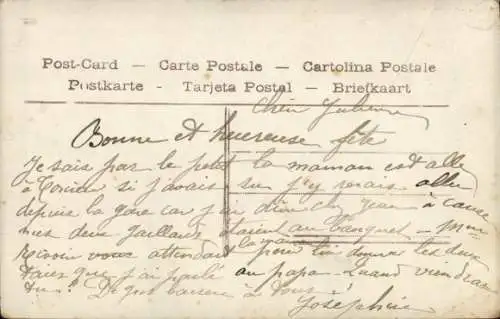 Post-Card — Carte Postale — Cartolina Postale
Postkarte - Tarjeta Postal - Briefkaart
Bonne et heureuse fête
Je sais par le petit la maman est allée
à si j'avais su j'y serais allée
depuis la gare car j'ai dîné chez Jean à cause
mes deux gaillards étaient au banquet - Mme
vous attendait pour lui donner les deux
que j'ai parlé au papa. Quand viendras
tu? De gros baisers à tous!
Joséphine